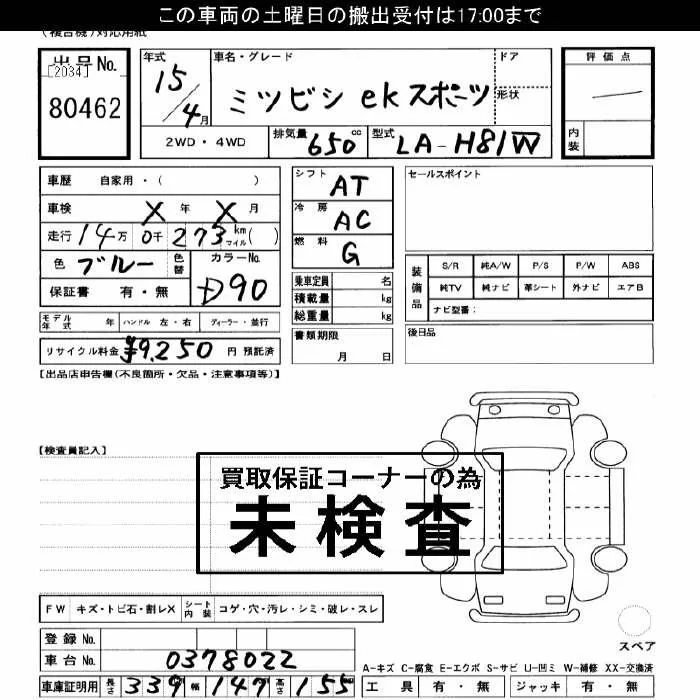 この車両の土曜日の搬出受付は17:00まで
(複合機)対応用紙
出品No.
[2034]
80462
年式
15/4月
車名・グレード
ミツビシ ekスポーツ
ドア
形状
評価点
内装
2WD・4WD
排気量 650cc
型式 LA-H81W
車歴 自家用・( )
車検 X 年 X 月
走行 14万 0千 273 km マイル( )
色 ブルー
色替
カラーNo.
D90
保証書 有・無
モデル年式 年 ハンドル 左・右 ディーラー・並行
リサイクル料金 ¥9,250 円 預託済
シフト AT
冷房 AC
燃料 G
乗車定員 名
積載量 kg
総重量 kg
書類期限
月 日
セールスポイント
装備品
S/R 純A/W P/S P/W ABS
純TV 純ナビ 革シート 外ナビ エアB
ナビ型番:
後日品
【出品店申告欄(不良箇所・欠品・注意事項等)】
【検査員記入】
買取保証コーナーの為
未検査
FW キズ・トビ石・割レX シート内装 コゲ・穴・汚レ・シミ・破レ・スレ
登録No.
車台No. 0378022
車庫証明用 長さ 339 幅 147 高さ 155
スペア
A-キズ C-腐食 E-エクボ S-サビ U-凹ミ W-補修 XX-交換済
工具 有・無 ジャッキ 有・無